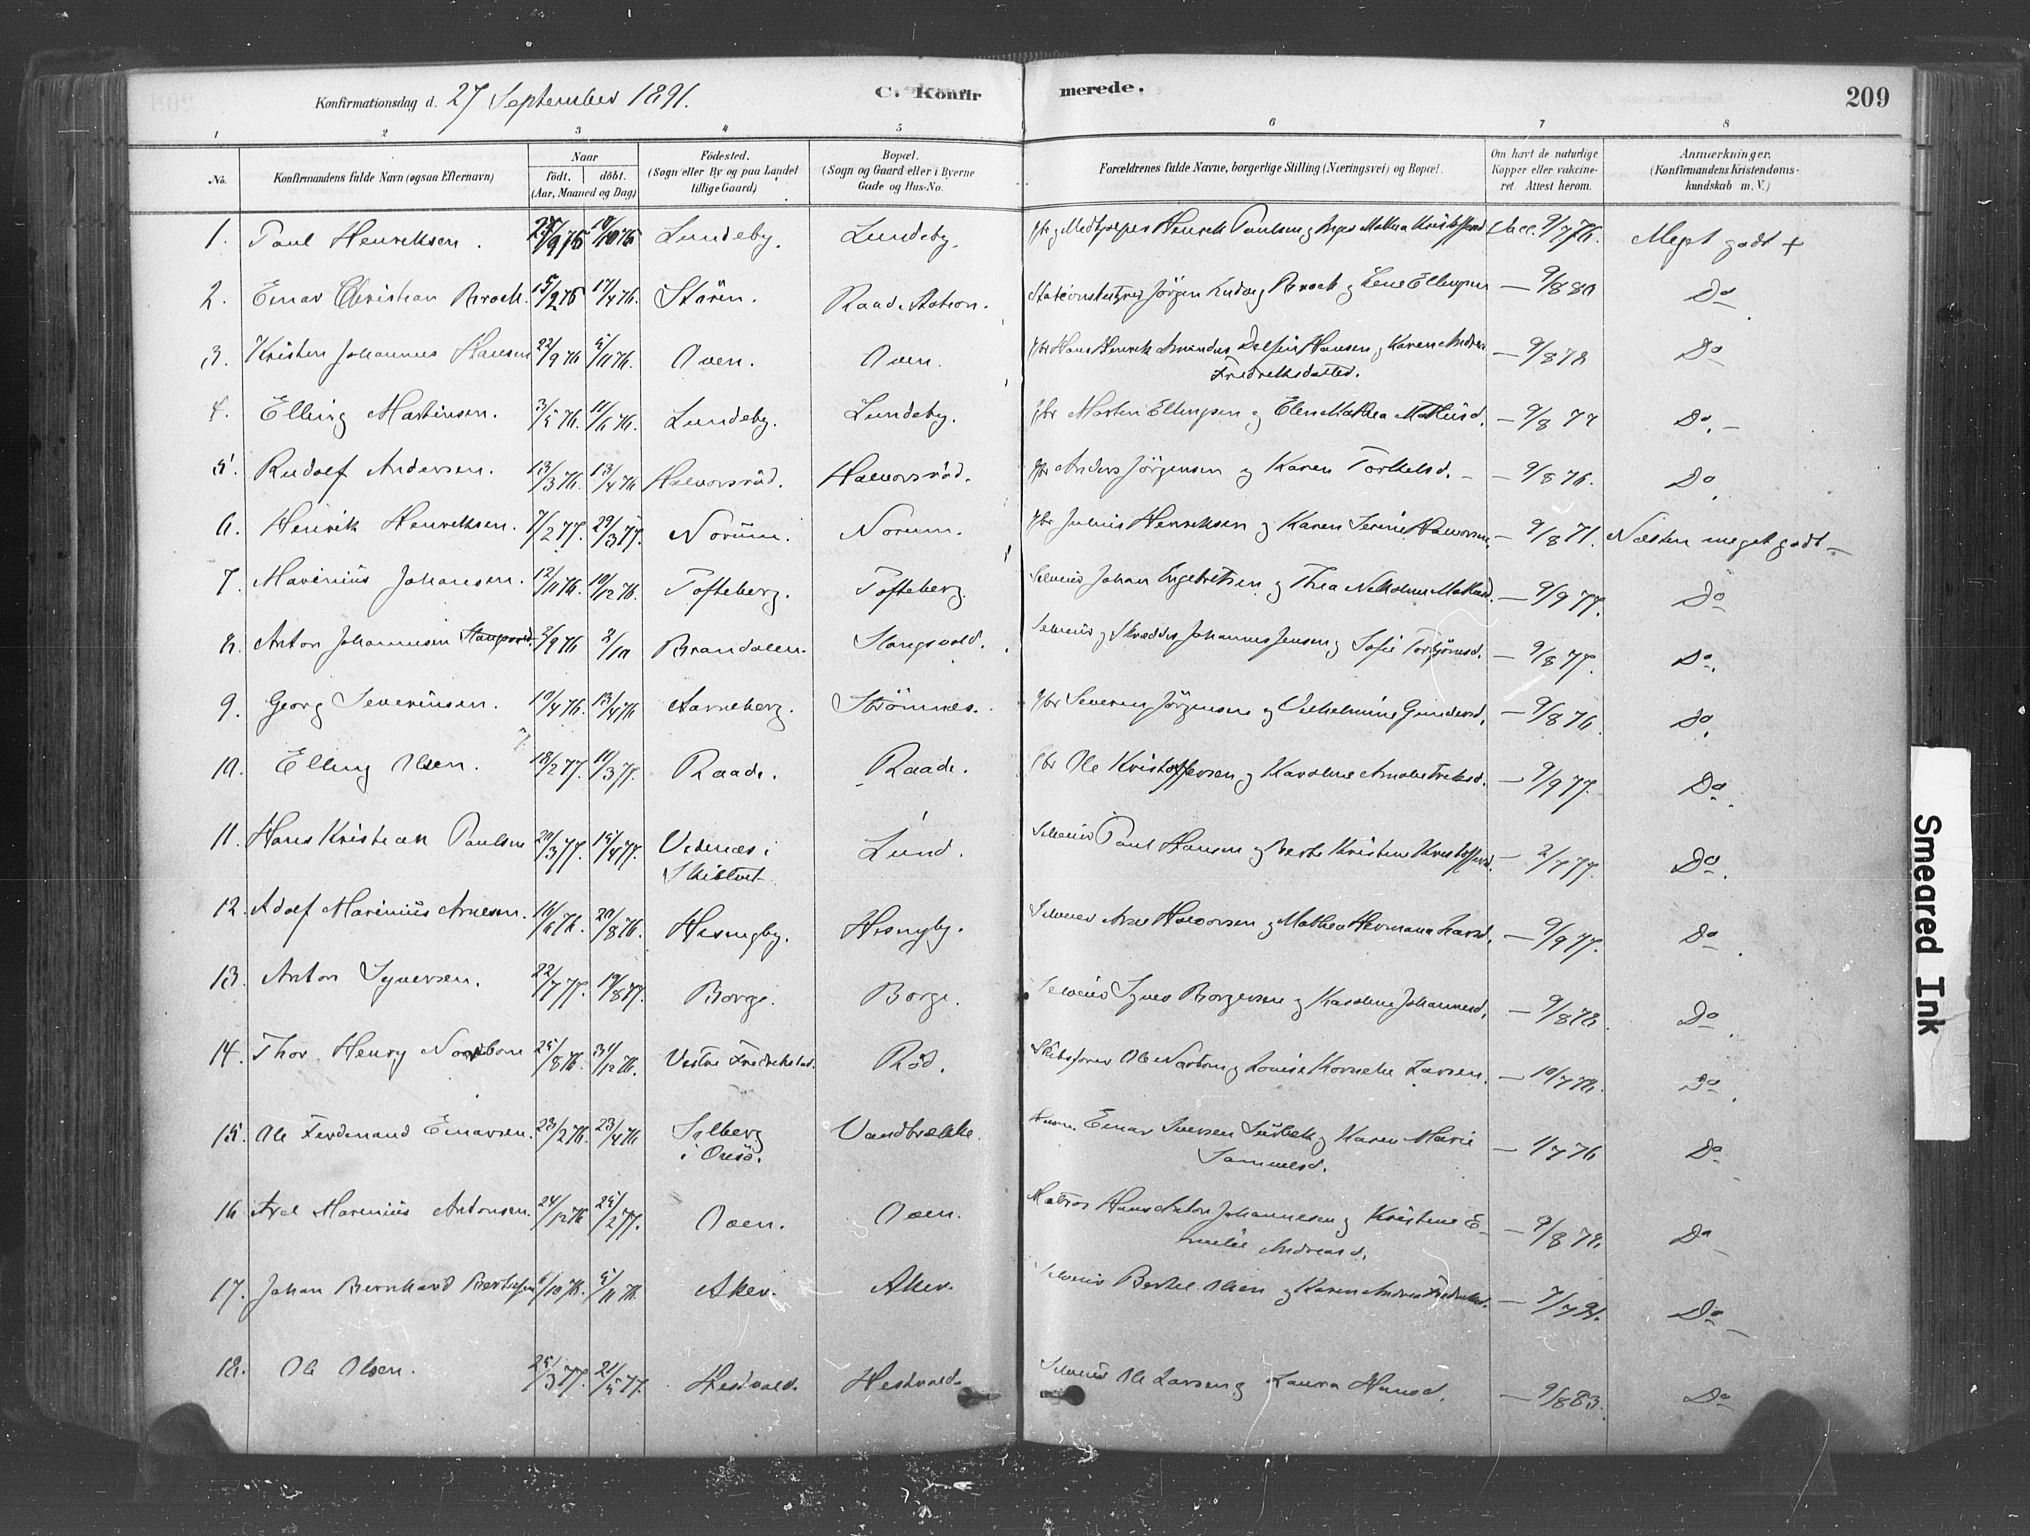 Konfirmationsdag d. 27 September 1891. C. Konfirmerede. 209
1 2 3 4 5 6 7 8
No. Konfirmandens fulde Navn (ogsaa Efternavn) Naar født. døbt. (Aar, Maaned og Dag) Fødested. (Sogn eller By og paa Landet tillige Gaard) Bopæl. (Sogn og Gaard eller i Byerne Gade og Hus-No. Forældrenes fulde Navne, borgerlige Stilling (Næringsvei) og Bopæl. Om havt de naturlige Kopper eller vakcineret Attest herom. Anmærkninger. (Konfirmandens Kristendomskundskab m. V.)
1. Paul Henriksen. Lundeby. Lundeby. Henrik Paulsen og 9/7 76. Meget godt +
2. Einar Christian Broch. 15/2 76 17/4 76. Støren. Raade Station. Jørgen Ludvig Broch og Lene Ellingsen — 9/8 80 Do
3. Kristen Johannes Hansen 22/9 76 5/11 76. Oven. Oven. Gbr Hans Henrik Amandus Delfin Hansen og Karen Andrea Fredriksdatter. — 9/8 78 Do
4. Elling Martinsen. 3/5 76. 11/6 76. Lundeby. Lundeby. Gbr Martin Ellingsen og Elen Mathea — 9/8 77 Do. –
5. Rudolf Andersen. 13/3 76. 13/4 76 Halvorsrød. Halvorsrød. Gbr Anders Jørgensen og Karen Torkelsd. – — 9/8 76. Do.
6. Henrik Henriksen. 7/2 77. 29/3 77. Norum. Norum. Gbr Julius Henriksen og Karen Serine Halvorsen — 9/8 71. Næsten meget godt –
7. Marinius Johansen. 12/11 76. 10/12 76. Tofteberg. Tofteberg. Selveier Johan Engebretsen og Thea — 9/9 77. Do
8. Anton Johannesen 2/9 76 2/10 Brandalen. Slangsvold. Selveier og Skrædder Johannes Jensen og Sofie Torbjørnsd. — 9/8 77. Do.
9. Georg Severinsen. 10/4 76. 13/4 76 Aarneberg. Strømnes. Gbr Severin Jørgensen og Vilhelmine Gundersd. — 9/8 76 Do.
10. Elling Olsen. 18/2 77. 11/3 77. Raade. Raade. Gbr Ole Kristoffersen og Karoline — 9/9 77. Do.
11. Hans Kristian Paulsen 20/3 77. 15/4 77. Vidnes i Skibtvet Lund. Selveier Paul Hansen og Berte Kristine Kristoffersd. – 2/7 77. Do.
12. Adolf Marinius Arnesen. 16/6 76. 20/8 76. Hesngby. Hesngby. Selveier Arne Halvorsen og Mathea Hermana Larsd. — 9/9 77. Do.
13. Anton Syversen. 22/7 77. 19/8 77. Borge. Borge. Selveier Syver Borgersen og Karoline Johannesd. — 9/8 78. Do.
14. Thor Henry Norbom 25/8 76. 31/12 76. Vestre Fredrikstad. Rød. Skibsfører Ole Norbom og Lovise Kornelie Larsen. — 10/7 78. Do.
15. Ole Ferdinand Einarsen. 23/2 76. 23/4 76 Solberg i Onsø. Vandbrække. Einar Iversen og Karen Marie Samuelsd. — 1/7 76 Do
16 Axel Marinius Antonsen. 24/12 76 25/2 77. Oven. Oven. Matros Hans Anton Johannesen og Kristine Emilie Andreasd. — 9/8 78. Do
17. Johan Bernhard Bertelsen 6/10 76. 5/11 76. Aker. Aker. Selveier Bertel Olsen og Karen Andrea Fredriksd. — 7/7 91. Do –
18. Ole Olsen. 25/3 77. 21/5 77. Hestvold. Hestvold. Selveier Ole Larsen og Laura Hansd. — 9/8 83. Do
Smeared Ink